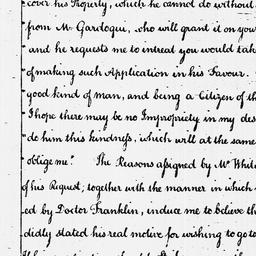 "cover his Property, which he cannot do without
"from Mr. Gardoqui, who will grant it on your
"and he requests me to intreat you would take
"of making such Application in his Favour.
"good kind of man, and being a Citizen of th
"I hope there may be no Impropriety in my des
"do him this kindness, which will at the same
"oblige me." The Reasons assigned by Mr. White
of his Request, together with the manner in which
ed by Doctor Franklin, induce me to believe th
didly stated his real motive for wishing to go to